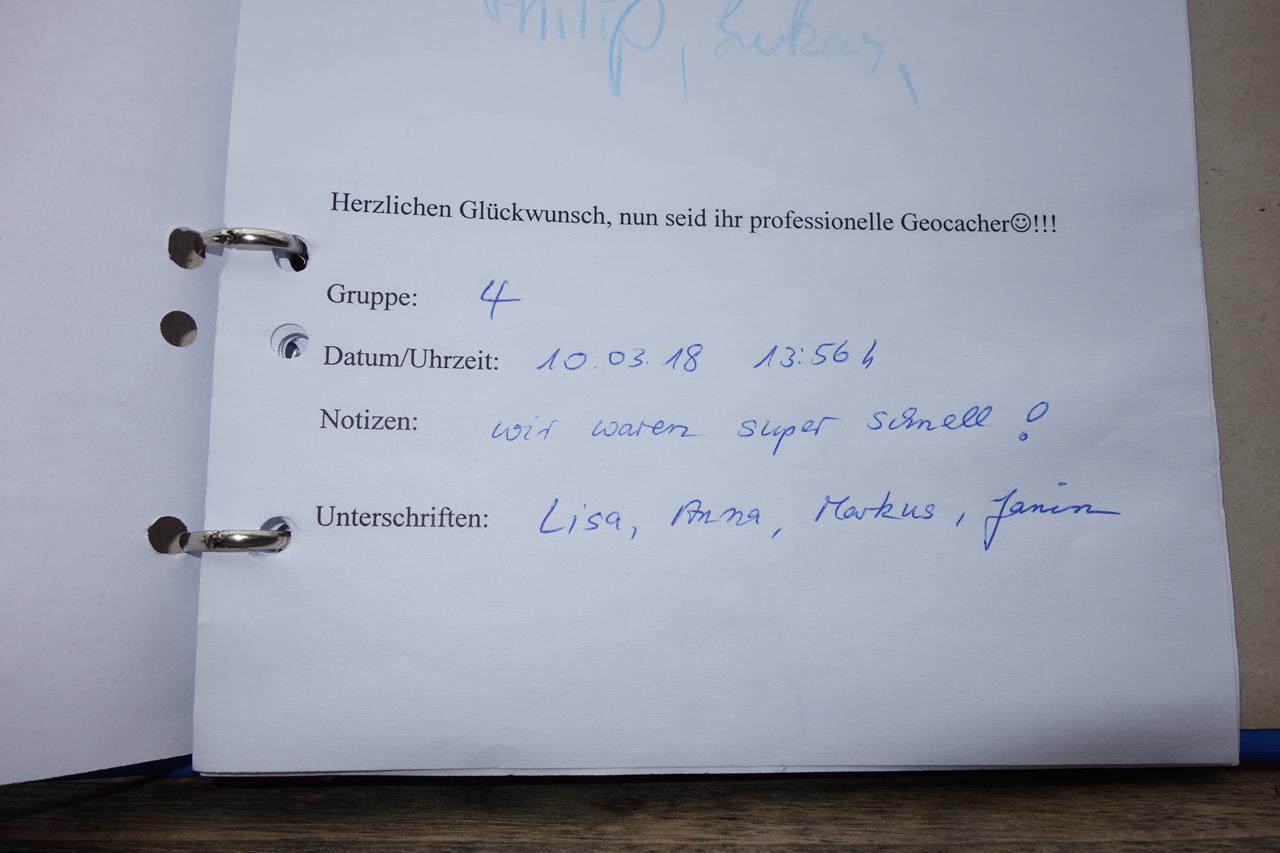 Philip, Lukas,
Herzlichen Glückwunsch, nun seid ihr professionelle Geocacher☺!!!
Gruppe: 4
Datum/Uhrzeit: 10.03.18 13:56 h
Notizen: wir waren super schnell!
Unterschriften: Lisa, Anna, Markus, Janin